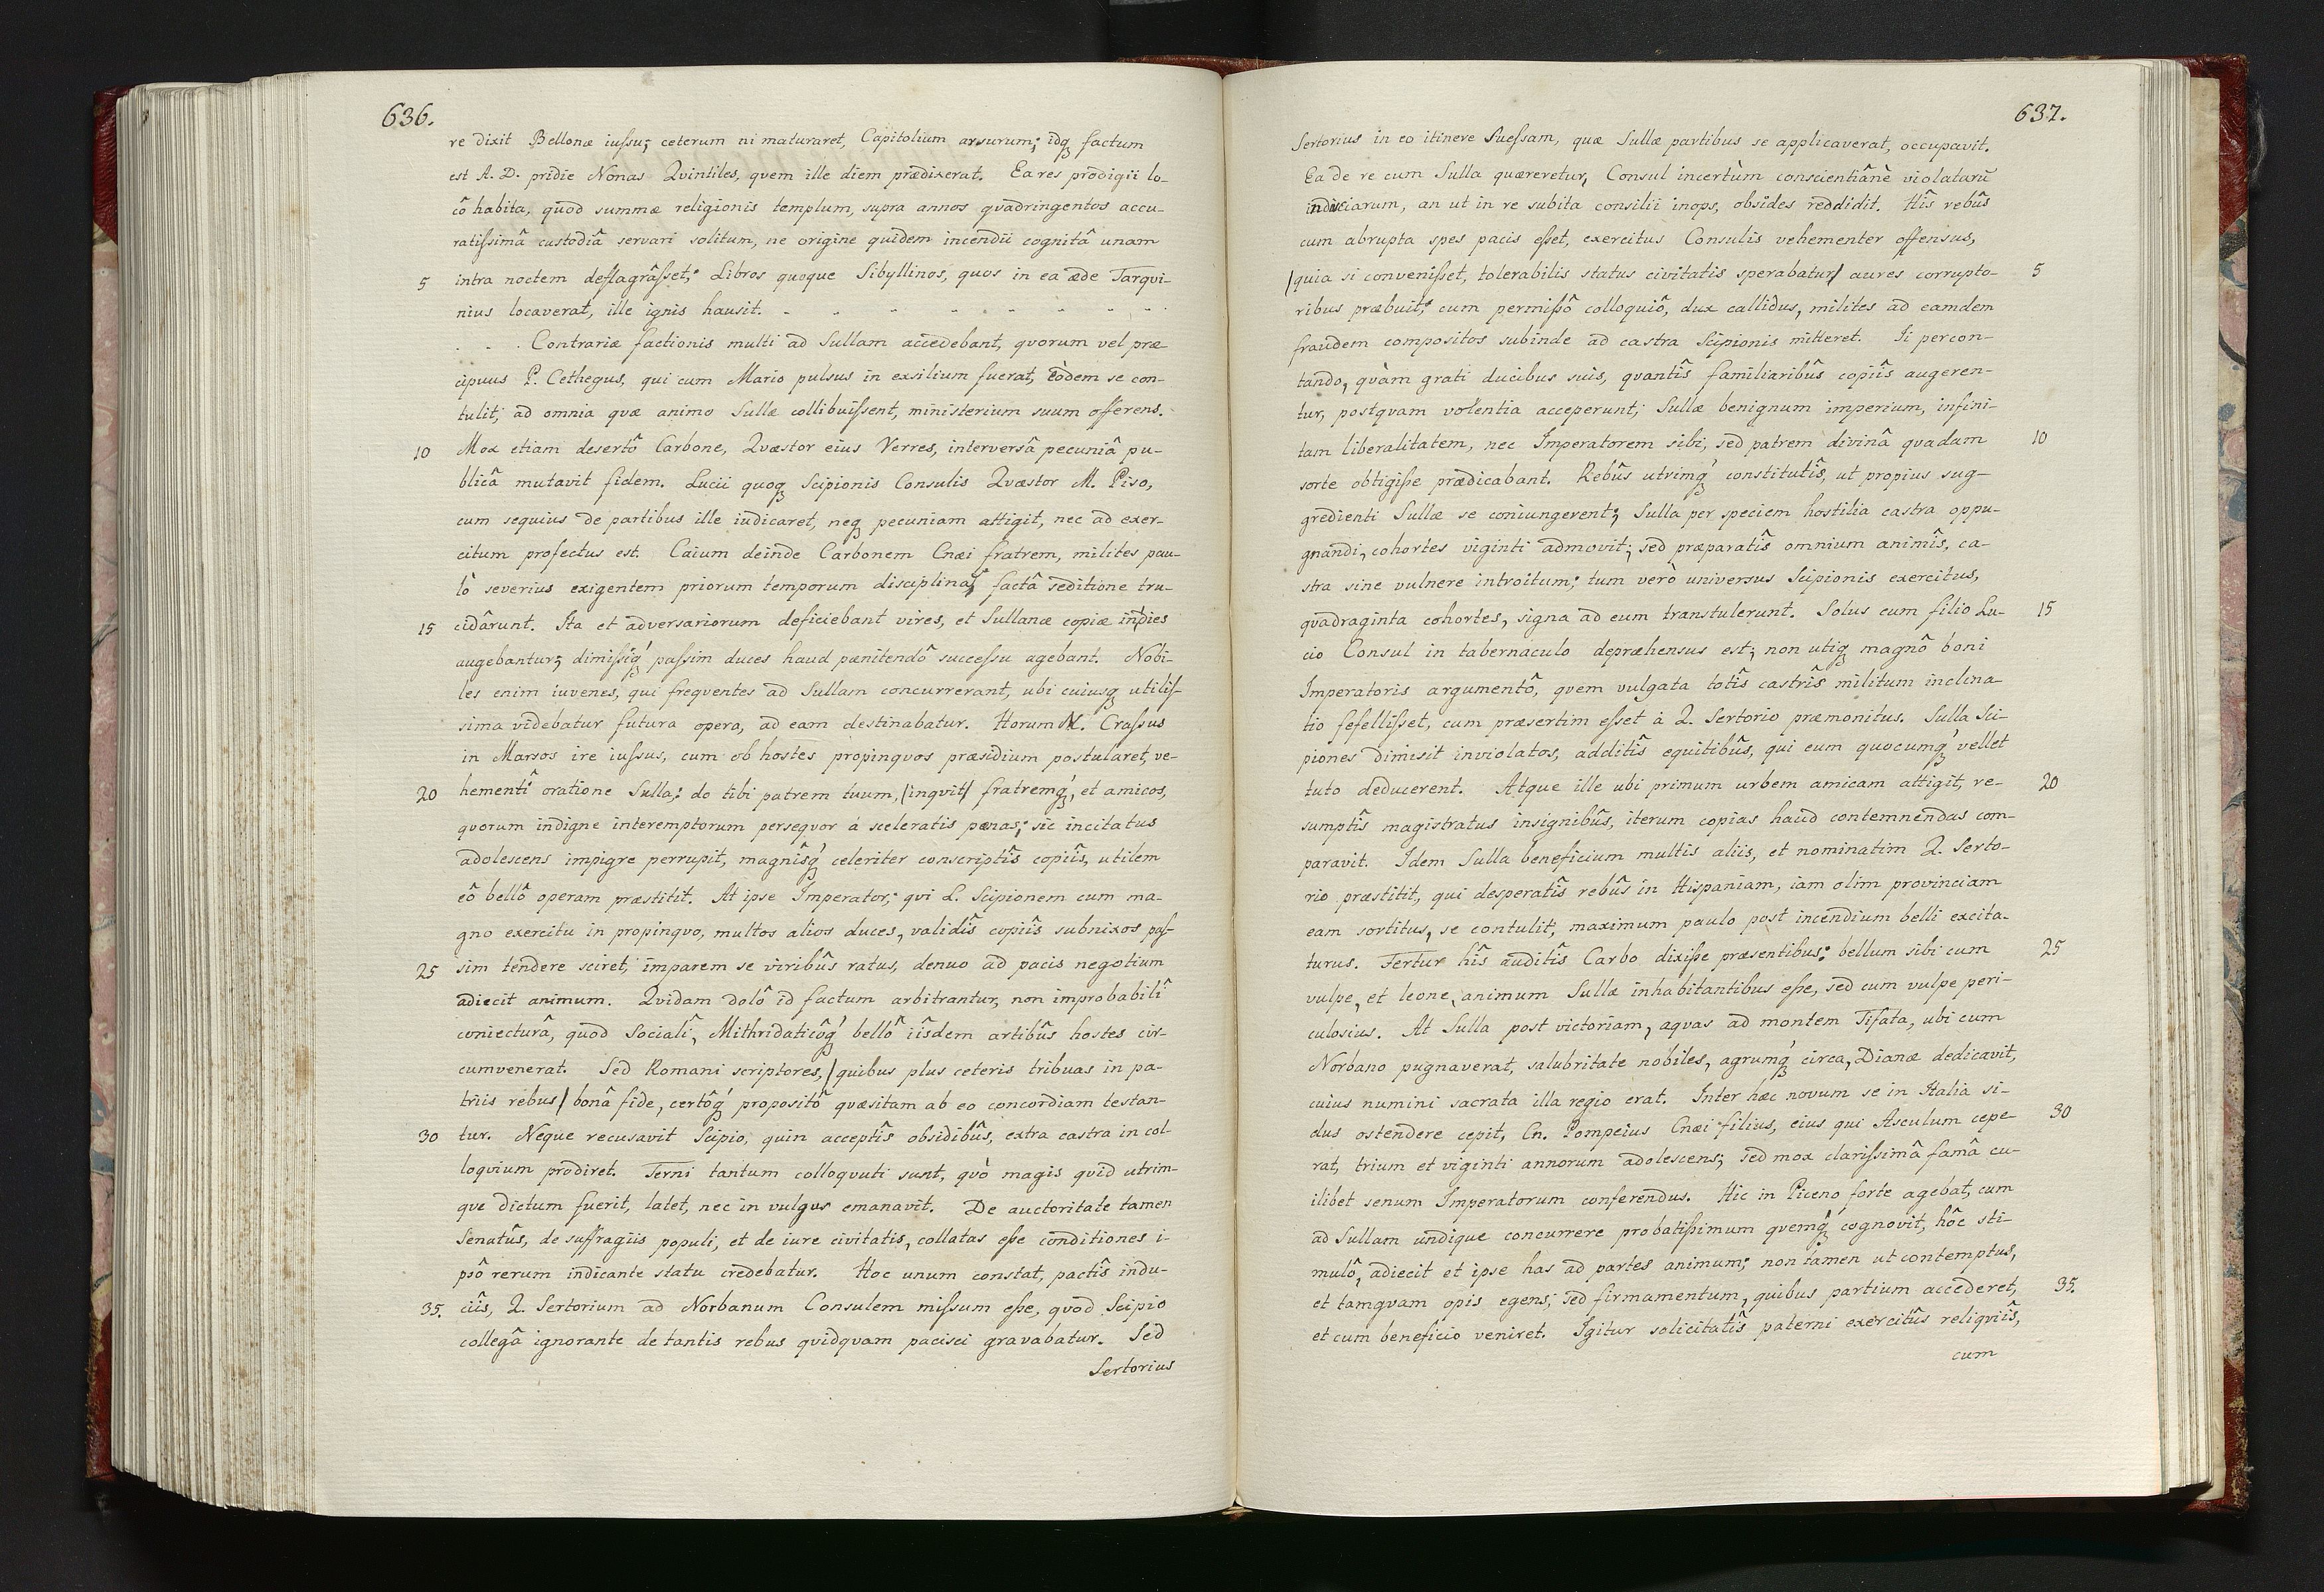 636.
re dixit Bellonæ iuſsu; ceterum ni maturaret, Capitolium arsurum; idq́ꝫ factum
est A. D. pridie Nonas Qvintiles, qvem ille diem prædixerat. Ea res prodigii lo-
cô habita, qvod summæ religionis templum, supra annos qvadringentos accu-
ratiſsimâ custodiâ servari solitum, ne origine quidem incendii cognitâ unam
5 intra noctem deflagrâſset; Libros quoque Sibyllinos, quos in ea æde Tarqvi-
nius locaverat, ille ignis hausit. - - - - - - - -
. - . Contrariæ factionis multi ad Sullam accedebant, qvorum vel præ
cipuus P. Cethegus, qui cum Mario pulsus in exsilium fuerat, eòdem se con-
tulit; ad omnia qvæ animo Sullæ collibuiſsent, ministerium suum offerens.
10 Mox etiam desertô Carbone, Qvæstor eius Verres, interversâ pecuniâ pu-
blicâ mutavit fidem. Lucii quoqꝫ Scipionis Consulis Qvæstor M. Piso,
cum sequius de partibus ille iudicaret, neqꝫ pecuniam attigit, nec ad exer-
citum profectus est. Caium deinde Carbonem Cnæi fratrem, milites pau-
lò severius exigentem priorum temporum disciplinam, factâ seditione tru-
15 cidârunt. Ita et adversariorum deficiebant vires, et Sullanæ copiæ indies
augebantur; dimiſsiqꝫ́ paſsim duces haud pænitendô successu agebant. Nobi-
les enim iuvenes, qui freqventes ad Sullam concurrerant, ubi cuiusqꝫ utiliſ-
sima videbatur futura opera, ad eam destinabatur. Horum M. Craſsus
in Marsos ire iuſsus, cum ob hostes propinqvos præsidium postularet, ve-
20 hementî oratione Sulla: do tibi patrem tuum, /inqvit/ fratremqꝫ́, et amicos,
qvorum indigne interemptorum perseqvor á sceleratis pœnas; sic incitatus
adolescens impigre perrupit, magnîsqꝫ́ celeriter conscriptîs copiîs, utilem
eô bellô operam præstitit. At ipse Imperator; qvi L. Scipionem cum ma-
gno exercitu in propinqvo, multos alios duces, validîs copiîs subnixos paſ-
25 sim tendere sciret, imparem se viribûs ratus, denuo ad pacis negotium
adiecit animum. Qvidam dolô id factum arbitrantur, non improbabilî
coniecturâ, quod Socialî, Mithridaticôqꝫ́ bellô iîsdem artibûs hostes cir-
cumvenerat. Sed Romani scriptores, /quibus plus ceteris tribuas in pa-
triis rebus/ bonâ fide, certôqꝫ́ propositô qvæsitam ab eo concordiam testan-
30 tur. Neque recusavit Scipio, quin acceptîs obsidibûs, extra castra in col
loqvium prodiret. Terni tantum colloqvuti sunt, qvò magis qvid utrim-
qve dictum fuerit, latet, nec in vulgus emanavit. De auctoritate tamen
Senatûs, de suffragiis populi, et de iure civitatis, collatas eſse conditiones i-
psô rerum indicante statu credebatur. Hoc unum constat, pactîs indu-
35. ciîs, Q. Sertorium ad Norbanum Consulem miſsum eſse, qvod Scipio
collegâ ignorante de tantis rebus qvidqvam pacisci gravabatur. Sed
Sertorius
637.
Sertorius in eo itinere Sueſsam, quæ Sullæ partibus se applicaverat, occupavit.
Ea de re cum Sulla quæreretur, Consul incertùm conscientiânè violatarũ
induciarum, an ut in re subita consilii inops, obsides reddidit. Hîs rebûs
cum abrupta spes pacis eſset, exercitus Consulis vehementer offensus,
/quia si conveniſset, tolerabilis status civitatis sperabatur/ aures corrupto- 5
ribus præbuit; cum permiſsô colloquiô, dux callidus, milites ad eamdem
fraudem compositos subinde ad castra Scipionis mitteret. Ii percon-
tando, qvàm grati ducibus suis, qvantîs familiaribûs copiîs augeren-
tur, postqvam volentia acceperunt; Sullæ benignum imperium, infini-
tam liberalitatem, nec Imperatorem sibi, sed patrem divinâ qvadam 10
sorte obtigiſse prædicabant. Rebûs utrimqꝫ́ constitutîs, ut propius sug-
gredienti Sullæ se coniungerent; Sulla per speciem hostilia castra oppu-
gnandi, cohortes viginti admovit; sed præparatîs omnium animîs, ca-
stra sine vulnere introitum; tum verò universus Scipionis exercitus,
qvadraginta cohortes, signa ad eum transtulerunt. Solus cum filio Lu- 15
cio Consul in tabernaculo depræhensus est; non utiqꝫ magnô boni
Imperatoris argumentô, qvem vulgata totîs castrîs militum inclina-
tio fefelliſset, cum præsertim eſset à Q. Sertorio præmonitus. Sulla Sci-
piones dimisit inviolatos, additîs equitibûs, qui eum quocumqꝫ́ vellet
tuto deducerent. Atque ille ubi primum urbem amicam attigit, re- 20
sumptîs magistratus insignibûs, iterum copias haud contemnendas com-
paravit. Idem Sulla beneficium multis aliis, et nominatim Q. Serto-
rio præstitit, qui desperatîs rebûs in Hispaniam, iam olim provinciam
eam sortitus, se contulit, maximum paulo post incendium belli excita-
turus. Fertur hîs auditîs Carbo dixiſse præsentibus: bellum sibi cum 25
vulpe, et leone, animum Sullæ inhabitantibus eſse, sed cum vulpe peri-
culosius. At Sulla post victoriam, aqvas ad montem Tifata, ubi cum
Norbano pugnaverat, salubritate nobiles, agrumqꝫ́ circa, Dianæ dedicavit,
cuius numini sacrata illa regio erat. Inter hæc novum se in Italia si-
dus ostendere cepit, Cn. Pompeius Cnæi filius, eius qui Asculum cepe- 30
rat, trium et viginti annorum adolescens; sed mox clariſsimâ famâ cu-
ilibet senum Imperatorum conferendus. Hic in Piceno forte agebat, cum
ad Sullam undique concurrere probatiſsimum qvemqꝫ́ cognovit, hôc sti-
mulô, adiecit et ipse has ad partes animum; non tamen ut contemptus,
et tamqvam opis egens, sed firmamentum, quibus partium accederet, 35.
et cum beneficio veniret. Igitur solicitatîs paterni exercitûs reliqviîs,
cum